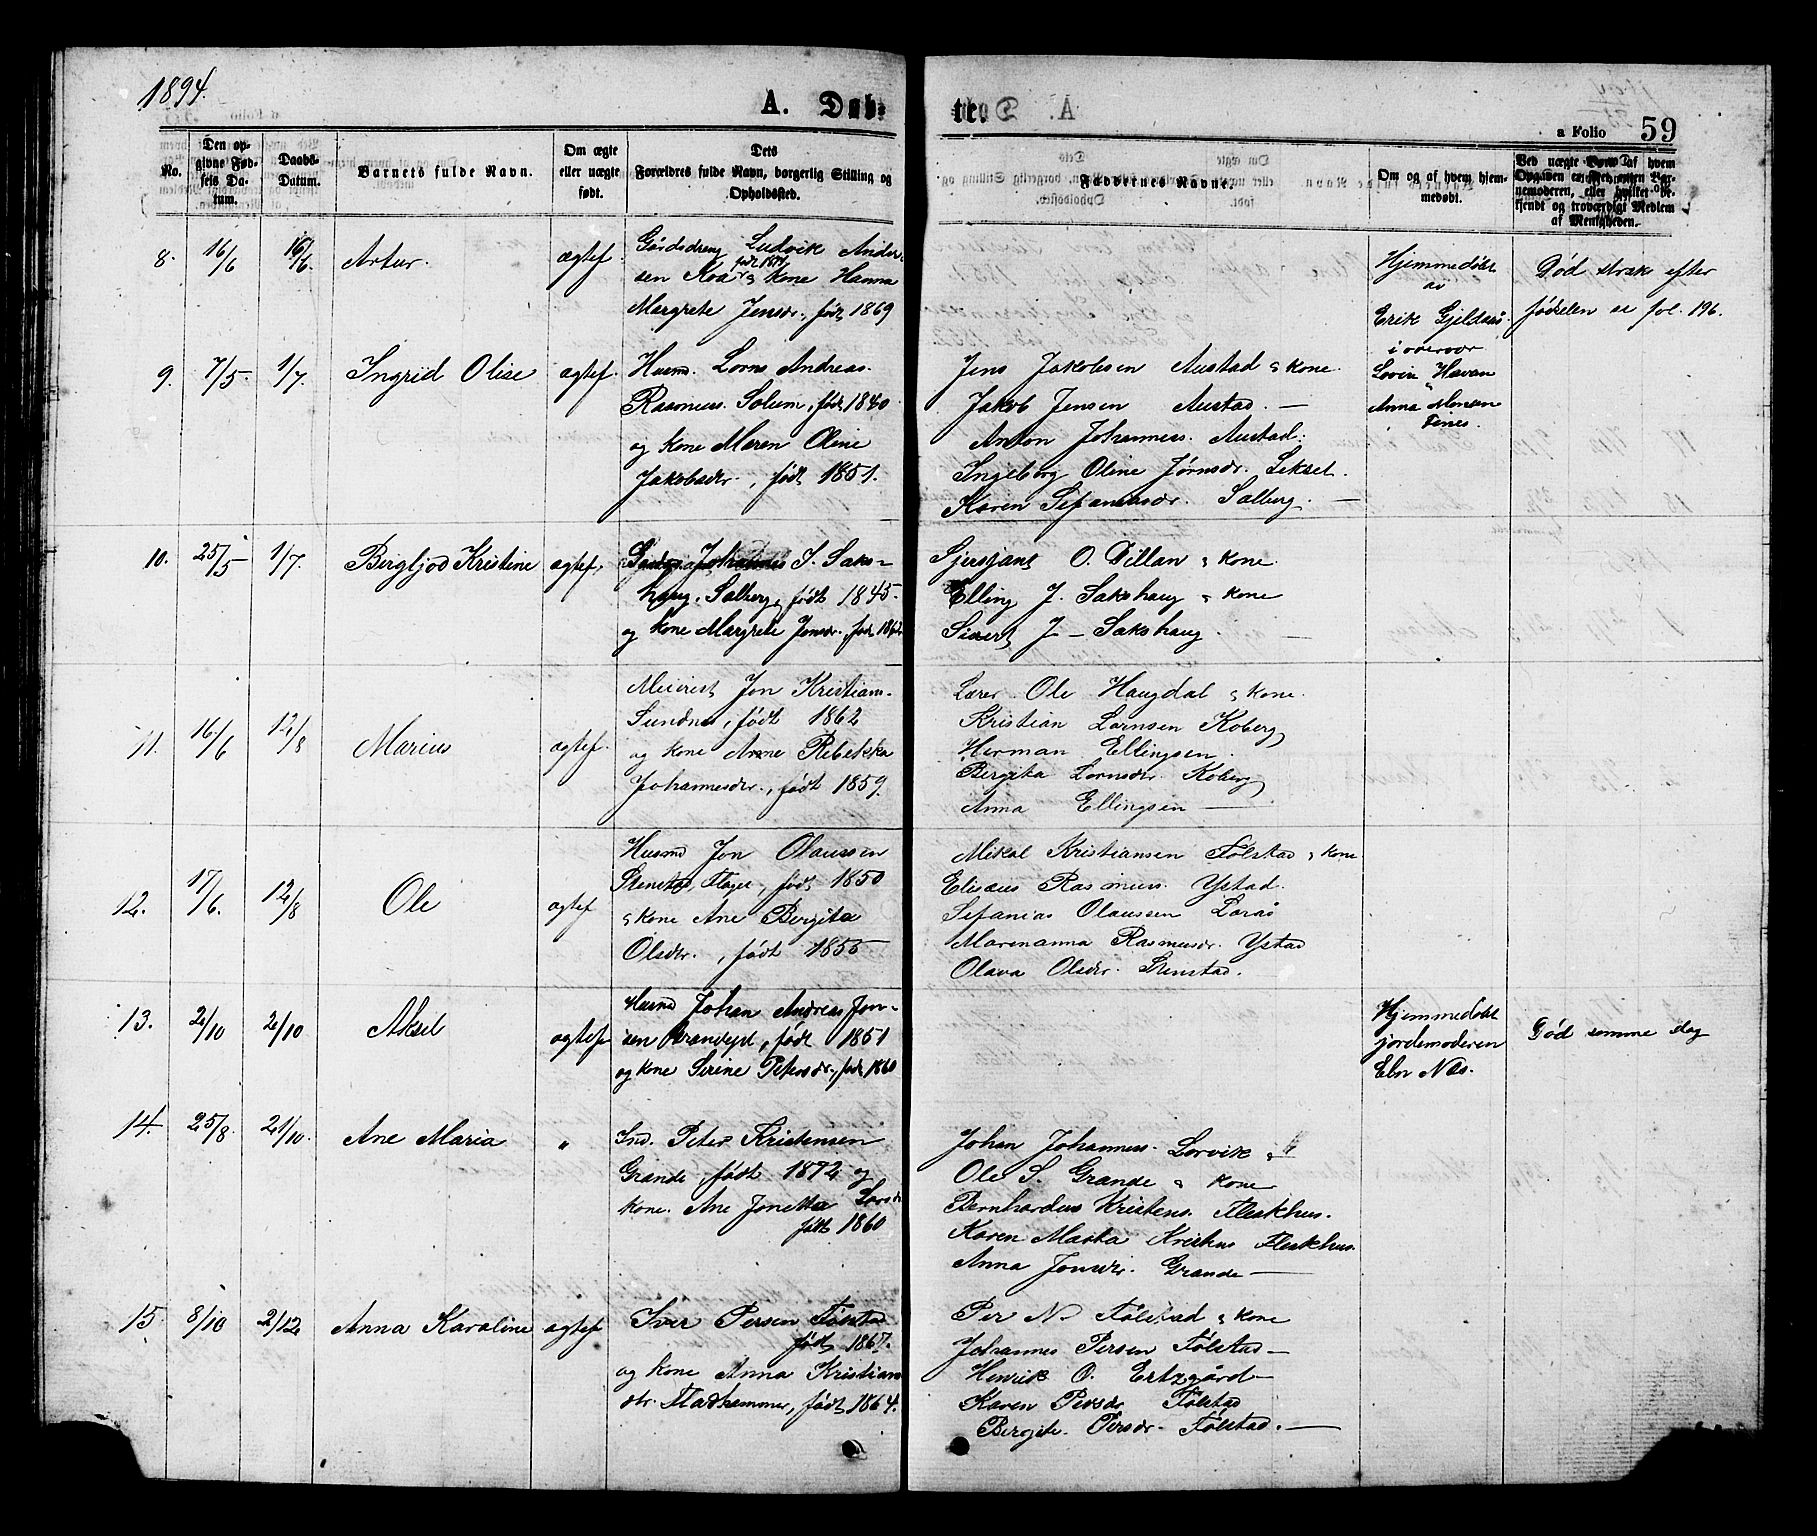 1894.
A. Døb-
te.
a Folio 59
No.
Den op-
givne Fød-
sels Da-
tum.
Daabs-
Datum.
Barnets fulde Navn.
Om ægte
eller uægte
født.
Dets
Forældres fulde Navn, borgerlig Stilling og
Opholdssted.
Faddernes Navne.
Om og af hvem hjem-
medøbt.
Ved uægte Børn af hvem
Opgaven er skeet, enten Bar-
nemoderen, eller hvilket be-
kjendt og troværdigt Medlem
af Menigheden.
8. 16/6 16/6. Artur. ægtef.
Gårdsdreng Ludvik Ander-
sen Roa & kone Hanna
Margrete Jensdr., født 1869
Hjemmedøbt
av
Erik Gjeldås
i overvær
Lovise Havan
Anna Monsen
Fines.
Død strak efter
fødselen se fol. 196.
9. 7/5. 1/7. Ingrid Olise ægtef.
Husmd. Lorns Andreas
Rasmuss. Solum, født 1840
og kone Maren Oline
Jakobsdr., født 1851.
Jens Jakobsen Austad & kone
Jakob Jensen Austad. —
Anton Johanness. Austad.
Ingeborg Oline Jørnsdr. Lekset.
Karen Sefaniasdr. Salberg. —
10. 25/5 1/7. Bergljod Kristine ægtef.
Johannes J. Saks-
haug, Salberg, født 1845.
og kone Margrete Jonsdr., født 1862
Sjersjant O. Dillan & kone
Elling J. Sakshaug & kone
Sivert J — Sakshaug.
11. 16/6 12/8 Marius ægtef.
Meierist Jon Kristian-
Sundnes, født 1862
og kone Anne Rebekka
Johannesdr., født 1859.
Lærer Ole Haugdal & kone.
Kristian Lornsen Koberg
Herman Ellingsen.
Bergita Lornsdr. Koberg
Anna Ellingsen —
12. 17/6. 12/8 Ole ægtef
Husmd Jon Olaussen
Stenstad, Flager, født 1850
& kone Ane Bergita
Olsdr., født 1855
Mikal Kristiansen Følstad & kone
Elisæus Rasmuss. Ystad.
Sefanias Olaussen Lorås
Marenanna Rasmusdr. Ystad
Olava Olsdr. Stenstad.
13. 2/10 2/10 Aksel ægtef
Husmd Johan Andreas Jon-
sen Brandeggt, født 1851
og kone Sirine Petersdr., født 1860
Hjemmedøbt
jordemoderen
Elen Næs.
Død samme dag
14. 25/8. 21/10. Ane Maria "
Ind. Peter Kristensen
Grande, født 1872 og
kone. Ane Jonetta Larsdr
født 1860
Johan Johanness. Lorvik &
Ole S. Grande & kone
Bernhardus Kristens. Fleskhus.
Karen Marta Kristens Fleskhus.
Anna Jonsdr. Grande —
15 8/10 2/12 Anna Karoline ægtef
Iver Persen Følstad
født 1867.
og kone Anna Kristians
dtr. Flathammer, født 1864.
Per N Følstad & kone
Johannes Persen Følstad —
Henrik O. Ertzgård —
Karen Persdr Følstad
Bergite. Persdr. Følstad. —